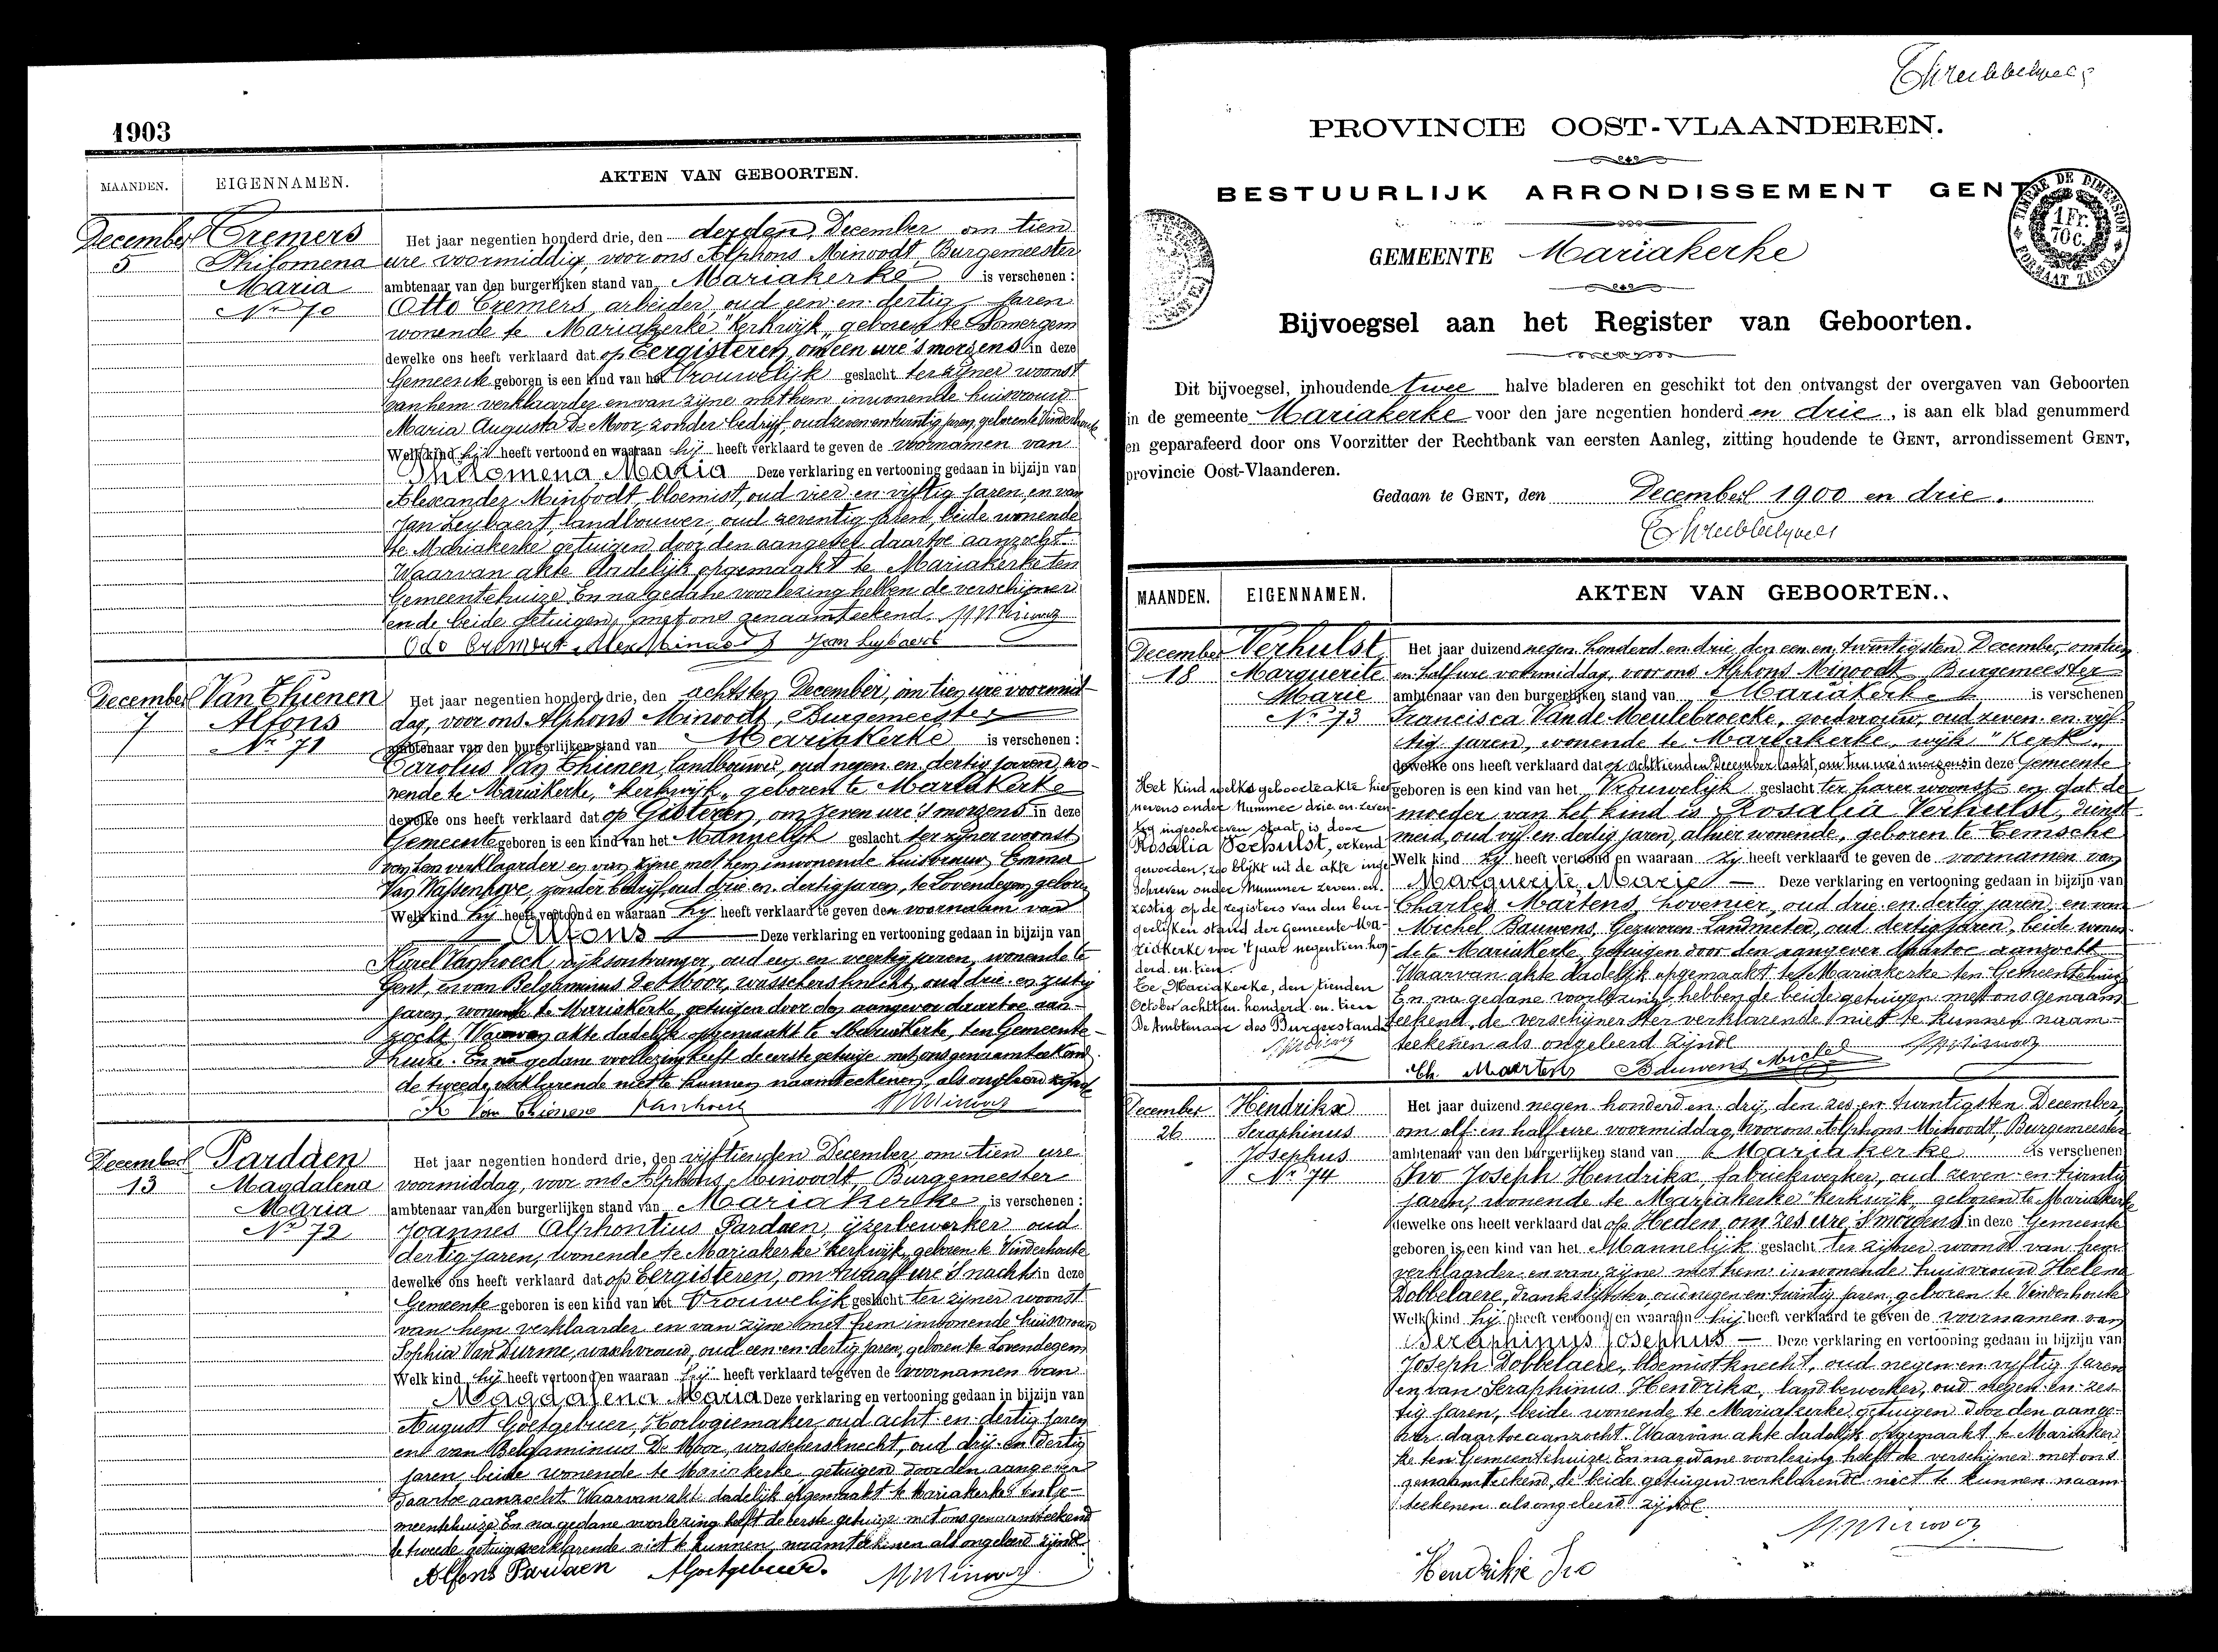 1903
MAANDEN. EIGENNAMEN. AKTEN VAN GEBOORTEN.
December
5
Cremers
Philomena
Maria
Nr 70
Het jaar negentien honderd drie, den derden December om tien
ure voormiddig, voor ons Alphons Minoodt, Burgemeester
ambtenaar van den burgerlijken stand van Mariakerke is verschenen :
Otto Cremers, arbeider, oud een-en-dertig jaren
wonende te Mariakerke "Kerkwijk" geboren te Somergem
dewelke ons heeft verklaard dat op Eergisteren, om een ure 's morgens in deze
Gemeente geboren is een kind van het Vrouwelijk geslacht ter zijner woonst
van hem verklaarder en van zijne met hem inwonende huisvrouw
Maria Augusta De Moor, zonder bedrijf, oud zeven en twintig jaren, geboren te Vinderhoute
Welk kind hij heeft vertoond en waaraan hij heeft verklaard te geven de voornamen van
Philomena Maria Deze verklaring en vertooning gedaan in bijzijn van
Alexander Minoodt, bloemist, oud vier en vijftig jaren, en van
Jan Leybaert, landbouwer, oud zeventig jaren, beide wonende
te Mariakerke getuigen door den aangever daartoe aanzocht.
Waarvan akte dadelijk opgemaakt te Mariakerke ten
Gemeentehuize. En na gedane voorlezing hebben de verschijner
en de beide getuigen, met ons genaamteekend.
Odo Cremers Alex Minoodt Jean Leybaert
December
7
Van Thienen
Alfons
Nr 71
Het jaar negentien honderd drie, den achtsten December, om tien ure voormid-
dag, voor ons Alphons Minoodt, Burgemeester
ambtenaar van den burgerlijken stand van Mariakerke is verschenen :
Carolus Van Thienen, landbouwer, oud negen en dertig jaren, wo-
nende te Mariakerke, "Kerkwijk", geboren te Mariakerke
dewelke ons heeft verklaard dat op Gisteren, om zeven ure 's morgens in deze
Gemeente geboren is een kind van het Mannelijk geslacht ter zijner woonst
van hem verklaarder en van zijne met hem inwonende huisvrouw Emma
Van Wassenhove, zonder bedrijf, oud drie en dertig jaren, te Lovendegem geboren
Welk kind hij heeft vertoond en waaraan hij heeft verklaard te geven den voornaam van
Alfons Deze verklaring en vertooning gedaan in bijzijn van
Karel Vanhoeck, rijksontvanger, oud een en veertig jaren, wonende te
Gent, en van Belgaminus De Moor, wasschersknecht, oud drie en zestig
jaren, wonende te Mariakerke, getuigen door den aangever daartoe aan-
zocht. Waarvan akte dadelijk opgemaakt te Mariakerke, ten Gemeente-
huize. En na gedane voorlezing heeft de eerste getuige met ons genaamteekend
de tweede verklarende niet te kunnen naamteekenen, als ongeleerd zijnde
K Van Thienen Vanhoeck
December
13
Pardaen
Magdalena
Maria
Nr 72
Het jaar negentien honderd drie, den vijftienden December om tien ure
voormiddag, voor ons Alphons Minoodt Burgemeester
ambtenaar van den burgerlijken stand van Mariakerke is verschenen :
Joannes Alphontius Pardaen, ijzerbewerker oud
dertig jaren, wonende te Mariakerke "Kerkwijk" geboren te Vinderhoute
dewelke ons heeft verklaard dat op Eergisteren, om twaalf ure 's nachts in deze
Gemeente geboren is een kind van het Vrouwelijk geslacht ter zijner woonst
van hem verklaarder en van zijne met hem inwonende huisvrouw
Sophia Van Durme, waschvrouw, oud een-en-dertig jaren, geboren te Lovendegem
Welk kind hij heeft vertoond en waaraan hij heeft verklaard te geven de voornamen van
Magdalena Maria Deze verklaring en vertooning gedaan in bijzijn van
August Goetgebuer, Horlogiemaker, oud acht-en-dertig jaren
en van Belgaminus De Moor, wasschersknecht, oud drij-en dertig
jaren beide wonende te Mariakerke, getuigen door den aangever
daartoe aanzocht. Waarvan akte dadelijk opgemaakt te Mariakerke ten Ge-
meentehuize. En na gedane voorlezing heeft de eerste getuige met ons genaamteekend
de tweede getuige verklarende niet te kunnen naamteekenen als ongeleerd zijnde.
Alfons Pardaen AGoetgebuer.
PROVINCIE OOST-VLAANDEREN.
BESTUURLIJK ARRONDISSEMENT GENT
TIMBRE DE DIMENSION
1 Fr.
70 C.
FORMAAT ZEGEL
GEMEENTE Mariakerke
Bijvoegsel aan het Register van Geboorten.
Dit bijvoegsel, inhoudende twee halve bladeren en geschikt tot den ontvangst der overgaven van Geboorten
in de gemeente Mariakerke voor den jare negentien honderd en drie, is aan elk blad genummerd
en geparafeerd door ons Voorzitter der Rechtbank van eersten Aanleg, zitting houdende te GENT, arrondissement GENT,
provincie Oost-Vlaanderen.
Gedaan te GENT, den December 1900 en drie.
MAANDEN. EIGENNAMEN. AKTEN VAN GEBOORTEN.
December
18
Verhulst
Marguerite
Marie
Nr 73
Het jaar duizend negen honderd en drie, den een en twintigsten December, om tien
en half ure voormiddag, voor ons Alphons Minoodt, Burgemeester
ambtenaar van den burgerlijken stand van Mariakerke is verschenen
Francisca Van de Meulebroecke, goedvrouw, oud zeven-en-vijf-
tig jaren, wonende te Mariakerke, wijk "Kerk"
dewelke ons heeft verklaard dat op achttienden December laatst, om tien ure 's morgens in deze Gemeente
geboren is een kind van het Vrouwelijk geslacht ter harer woonst en dat de
moeder van het kind is Rosalia Verhulst, dienst-
meid, oud vijf en dertig jaren, alhier wonende, geboren te Temsche
Welk kind zij heeft vertoond en waaraan zij heeft verklaard te geven de voornamen van
Marguerite Marie Deze verklaring en vertooning gedaan in bijzijn van
Charles Martens, hovenier, oud drie en dertig jaren, en van
Michel Bauwens, Gezworen Landmeter, oud dertig jaren, beide wonen-
de te Mariakerke, getuigen door den aangever daartoe aanzocht
Waarvan akte dadelijk opgemaakt te Mariakerke ten Gemeentehuize
En na gedane voorlezing hebben de beide getuigen met ons genaam-
teekend, de verschijnster verklarende niet te kunnen naam-
teekenen als ongeleerd zijnde
Ch. Maartens Bauwens Michel
Het Kind welks geboorteakte hier
nevens onder Nummer drie-en-zeven-
tig ingeschreven staat is door
Rosalia Verhulst, erkend
geworden, zoo blijkt uit de akte inge-
schreven onder Nummer zeven-en-
zestig op de registers van den bur-
gerlijken stand der Gemeente Ma-
riakerke voor 't jaar negentien hon-
derd en tien.
Te Mariakerke, den tienden
October achttien honderd en tien
De Ambtenaar des Burgerstands
December
26
Hendrikx
Seraphinus
Josephus
Nr 74
Het jaar duizend negen honderd en drij, den zes en twintigsten December,
om elf en half ure voormiddag, voor ons Alphons Minoodt, Burgemeester
ambtenaar van den burgerlijken stand van Mariakerke is verschenen
Ivo Joseph Hendrikx, fabriekwerker, oud zeven-en-twintig
jaren, wonende te Mariakerke "Kerkwijk" geboren te Mariakerke
dewelke ons heeft verklaard dat op Heden, om zes ure 's morgens in deze Gemeente
geboren is een kind van het Mannelijk geslacht ter zijner woonst van hem
verklaarder en van zijne met hem inwonende huisvrouw Helena
Dobbelaere, drankslijtster, oud negen en twintig jaren, geboren te Vinderhoute
Welk kind hij heeft vertoond en waaraan hij heeft verklaard te geven de voornamen van
Seraphinus Josephus Deze verklaring en vertooning gedaan in bijzijn van
Joseph Dobbelaere, bloemistknecht, oud negen en vijftig jaren
en van Seraphinus Hendrikx, landbewerker, oud negen-en-zes-
tig jaren, beide wonende te Mariakerke, getuigen door den aange-
ver daartoe aanzocht. Waarvan akte dadelijk opgemaakt te Mariaker-
ke ten Gemeentehuize. En na gedane voorlezing heeft de verschijner met ons
genaamteekend, de beide getuigen verklarende niet te kunnen naam-
teekenen als ongeleerd zijnde.
Hendrikx Ivo